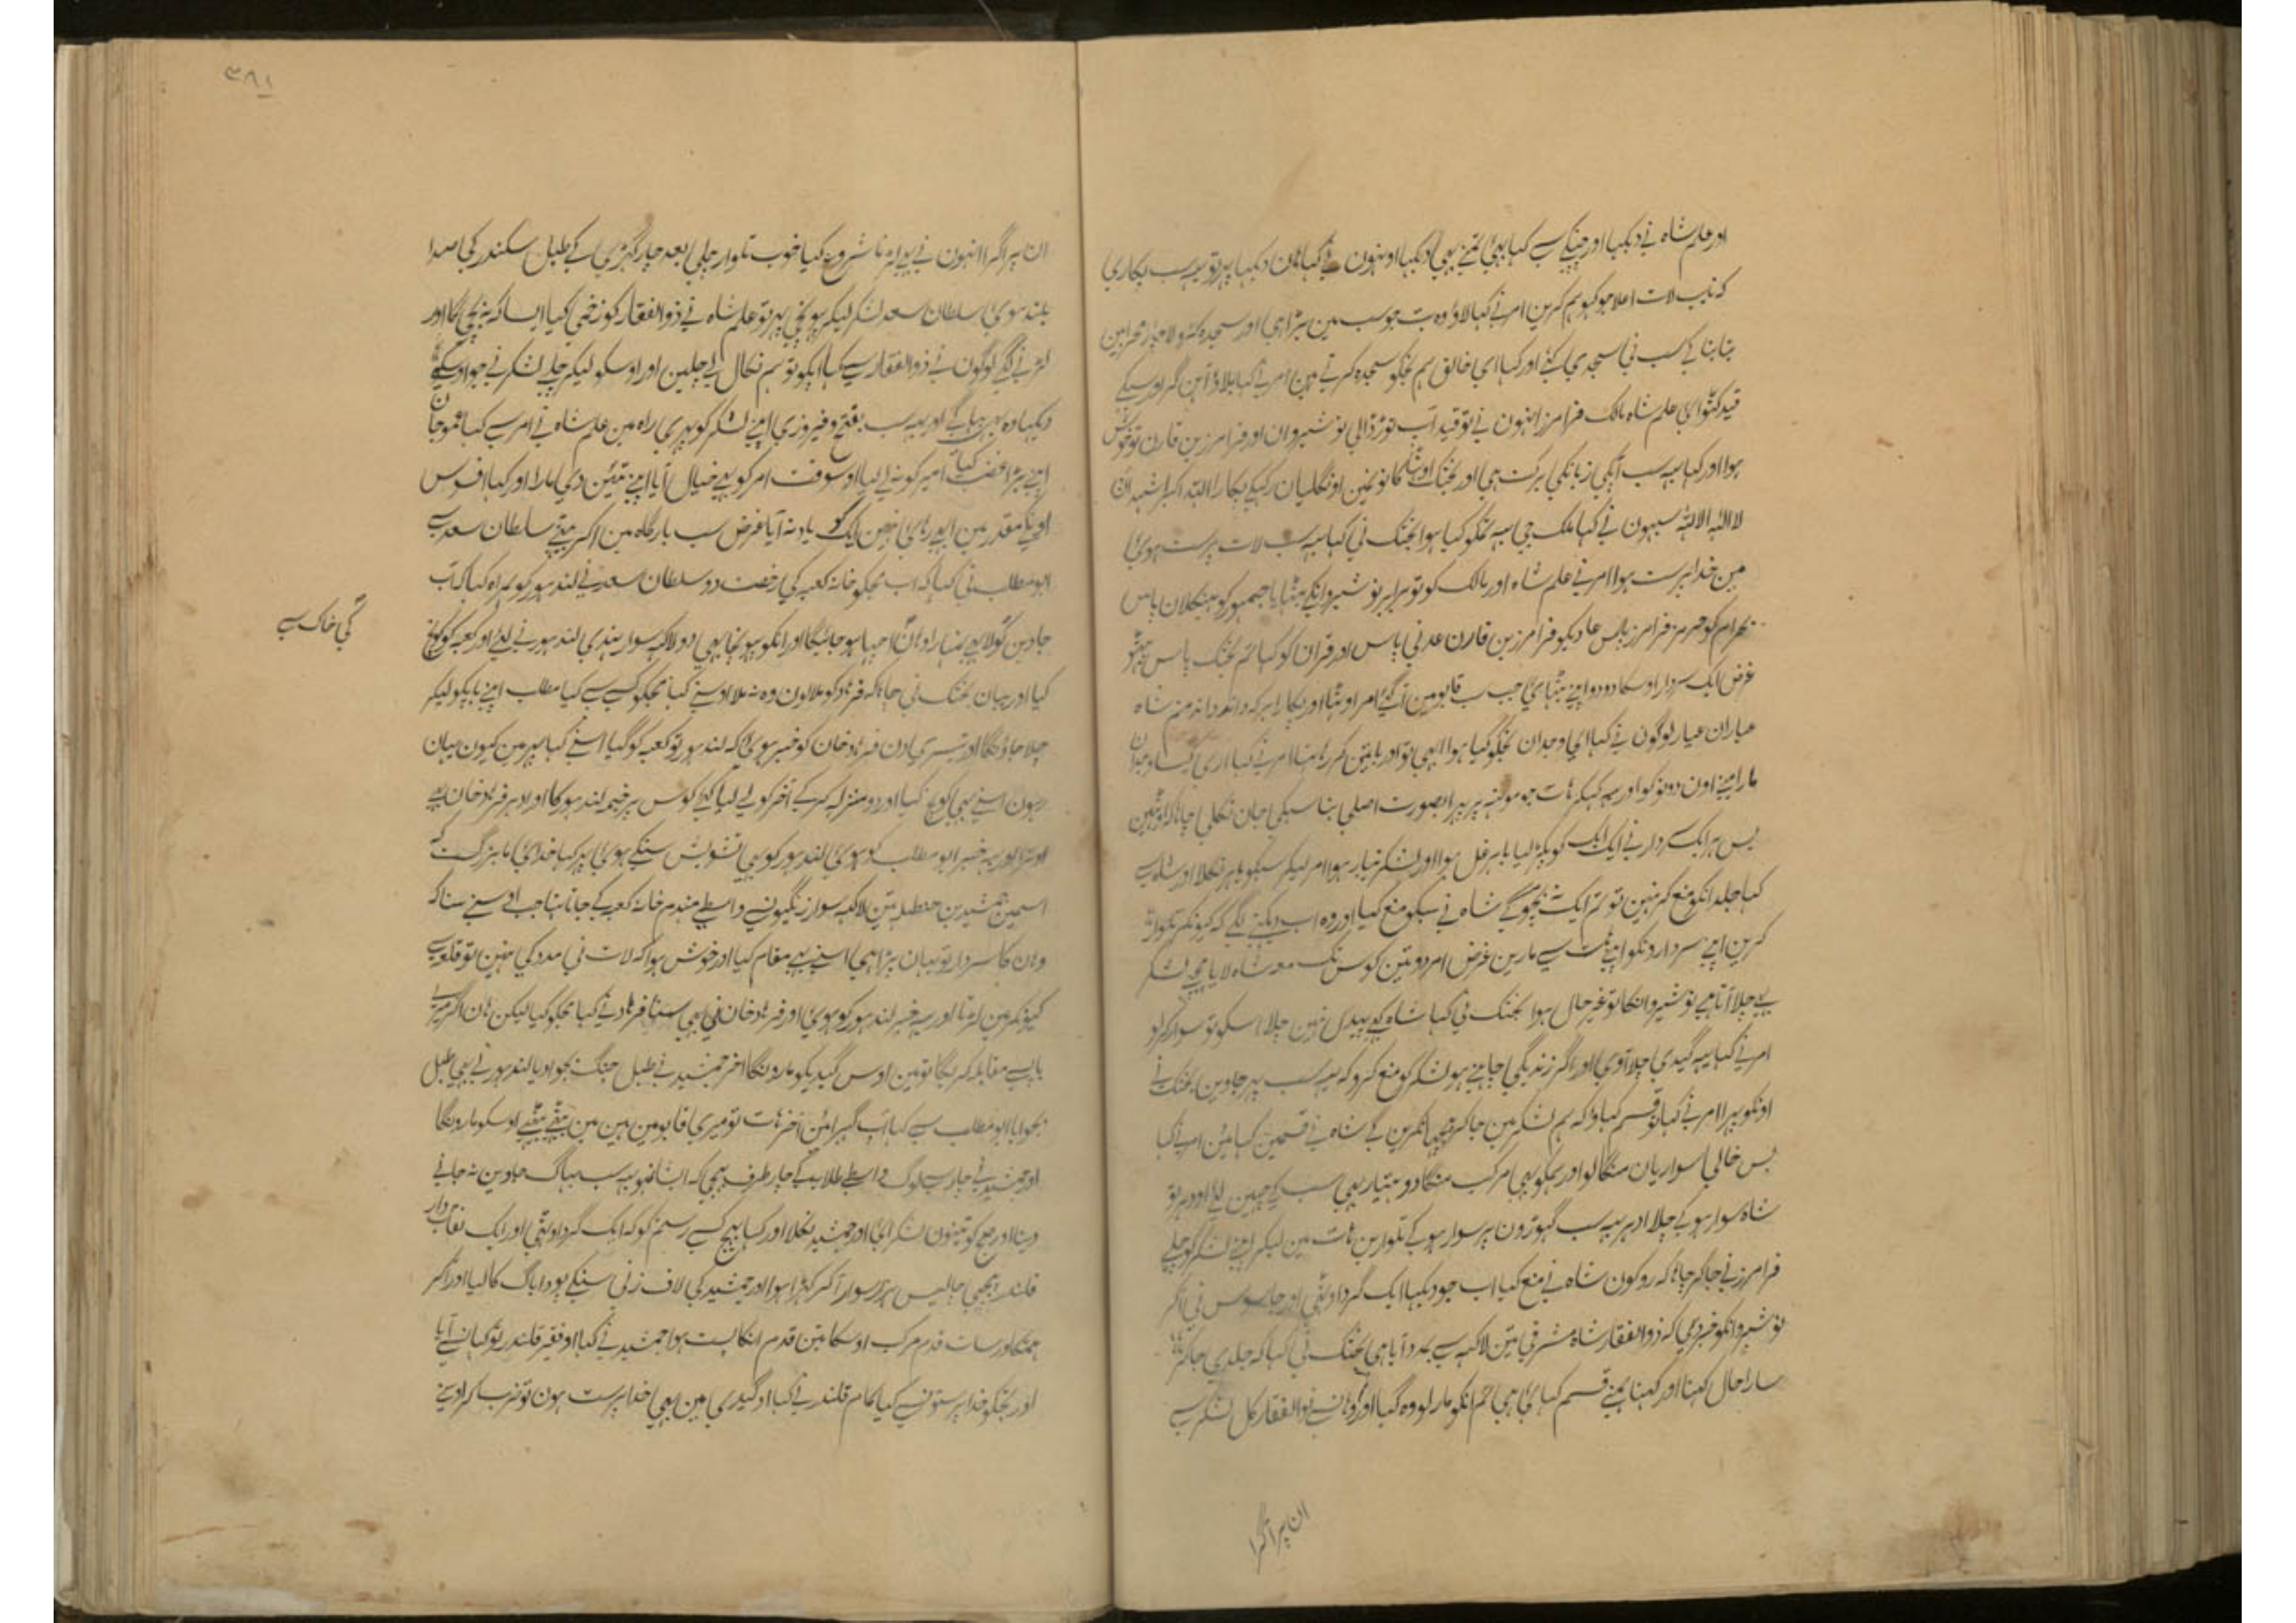 اور علم شاہ نے دیکھا اور چپکے سے کہا بھئی تمنے بھی دیکھا اونہون نے کہا ہان دیکھا پھر تو یہ سب پکاری
کہ نایب لات اعلا جو کہو ہم کرین امر نے کہا لاؤ وہ بت جو سب مین بڑا ہی اور سجدہ کرو لاچار محرابین
بنا بنا کے سب نی سجدی کئے اور کہا ای خالق ہم تجکو سجدہ کرتے ہین امر نے کہا بلاؤ آہن گر اور سبکے
قید کٹوا دی علم شاہ مالک فرامرز انہون نے تو قید آپ توڑ ڈالی نوشیروان اور فرامرز بن قارن تو خوش
ہوا اور کہا یہ سب آپکی زبانکی برکت ہی اور بختک اوٹھا کانونمین اونگلیان رکہکے پکارا اللہ اکبر اشہد ان
لا الہ الا اللہ سبہون نے کہا ملک جی یہ تمکو کیا ہوا بختک نی کہا یہ سب لات پرست ہوئی
مین خدا پرست ہوا امر نے علم شاہ اور مالک کو تو برابر نوشیروانکے بٹھایا جمہور کو ہیکلان پاس
بہرام کو ہرمز فرامرز پاس عادیکو فرامرز بن قارن عدنی پاس اور قران کو کہا تم بختک پاس بیٹھو
غرض ایک سردار اوسکا دو دو اپنے بٹھائی جب سب قابو مین آ گئے امر اوٹھا اور پکارا ہر کہ داند داند منم شاہ
عیاران عیار لوگون نے کہا ای وجدان تجکو کیا ہوا ابھی تو اور باتین کر رہا تہا امر نے کہا اری کیسا وجدان
مارا مینے اون دونوکو اور یہ کہکر ہات جو مونہہ پر پہرا بصورت اصلی بنا سبکی جان نکلی چاہا کہ اوٹھین
بس ہر ایک سردار نے ایک ایک کو پکڑ لیا باہر غل ہوا اور لشکر تیار ہوا امر لیکر سبکو باہر نکلا اور شاہ سے
کہا جلد انکو منع کر نہین تو تم ایک نہ بچوگے شاہ نے سبکو منع کیا اور وہ اب دیکہنے لگے کہ کیونکر تلوار
کرین اپنے سردارونکو اپنے ہات سے مارین غرض امر دو تین کوس تک معہ شاہ لایا پیچھے لشکر
یہ چلا آتا ہے نوشیروانکا تو غیر حال ہوا بختک نی کہا شاہ کبھی پیدل نہین چلا اسکو تو سوار کرلو
امر نے کہا یہ گیدی چلا آوی اور اگر زندگی چاہتے ہو لشکر کو منع کرو کہ یہ سب پہر جاوین بختک نے
اونکو پہرا امر نے کہا تو قسم کہاؤ کہ ہم لشکر مین جا کر پیچھا نکرین گے شاہ نے قسمین کہائین امر نے کہا
بس خالی سواریان منگالو اور ہمکو بھی مرکب منگا دو ہتیار بھی سب کے چھین لئے اودہر تو
شاہ سوار ہو کے چلا ادہر یہ سب گہوڑون پر سوار ہو کے تلوارین ہات مین لیکر اپنے لشکر کو چلے
فرامرز نے جا کر چاہا کہ روکون شاہ نے منع کیا اب جو دیکہا ایک گرد اوٹھی اور جاسوس نی آ کر
نوشیروانکو خبر دی کہ ذوالفقار شاہ مشرقی تین لاکہہ سے بمدد آیا ہی بختک نی کہا کہ جلدی جا کر
سارا حال کہنا اور کہنا ہمنے قسم کہائی ہی تم انکو مار لو وہ گیا اور وہانسے ذوالفقار کل لشکر سے
ان پر آ گرا
۳۸۱
ان پر آ گرا انہون نے بھی لڑنا شروع کیا خوب تلوار چلی بعد چار گہڑی کے طبل سکندر کی صدا
بلند ہوئی سلطان سعد لشکر لیکر پہونچی پہر تو علم شاہ نے ذوالفقار کو زخمی کیا ایسا کہ نہ بچی گا اور
لڑنے لگے لوگون نے ذوالفقار سے کہا آپکو تو ہم نکال لے چلین اور اوسکو لیکر چلے لشکر نے جو اوسکے
دیکہا وہ بھی بہاگے اور یہ سب بفتح و فیروزی اپنے لشکر کو پہری راہ مین علم شاہ نے امر سے کہا عموجان
اپنے بڑا غضب کیا امیر کو نہ لے لیا اوسوقت امر کو یہ خیال آیا اپنے تئین دی مارا اور کہا افسوس
اونکے مقدر مین ابھی رہائی نہین ایک کو یاد نہ آیا غرض سب بارگاہ مین آ کر بیٹھے سلطان سعد سے
ابو مطلب نی کہا کہ اب مجکو خانہ کعبہ کی رخصت دو سلطان سعد نے لندہور کو ہمراہ کیا کہ آپ
جاوین گولا بھی تمہارا وہان کی خاک سے اچھا ہو جائیگا اور انکو پہونچا بھی دو لاکہہ سوار ہندی لندہور نے لئے اور کعبہ کو کوچ
کیا اور یہان بختک نی چاہا کہ فرہاد کو ملا لون وہ نہ ملا اوسنے کہا مجکو کسی سے کیا مطلب اپنے باپکو لیکر
چلا جاؤنگا اور تیسری دن فرہاد خان کو خبر ہوئی کہ لندہور تو کعبہ کو گیا اسنے کہا پہر مین کیون یہان
رہون اسنے بھی کوچ کیا اور دو منزلہ کر کے آخر کو لے لیا کئی کوس پر خیمہ لندہور کا اور ادہر فرہاد خان بھی
اوترا اور یہ خبر ابو مطلب کو ہوئی لندہور کو بھی تشویش سنکے ہوئی پر کہا خدائی ما بزرگست
اسمین جمشید بن حنظلہ تین لاکہہ سوار زنگیونسے واسطے منہدم خانہ کعبہ کے جاتا تہا جب اوسنے سنا کہ
وہان کا سردار تو یہان پڑا ہی اسنے بھی مقام کیا اور خوش ہوا کہ لات نی مدد کی نہین تو قلعہ سے
کیونکر مین لڑتا اور یہ خبر لندہور کو ہوئی اور فرہاد خان نی بھی سنا فرہاد نے کہا مجکو کیا لیکن ہان اگر میرے
باپسے مقابلہ کریگا تو مین اوس گیدیکو مارونگا آخر جمشید نے طبل جنگ بجوا دیا لندہور نے بھی طبل
بجوایا ابو مطلب سے کہا آپ گہبرائین آخر ہات تو میری قابو مین ہین مین بیٹھے بیٹھے اوسکو مارونگا
اور جمشید نے چار سے لوگ واسطے طلایہ کے چار طرف بھیجی کہ ایسا نہو یہ سب بہاگ جاوین نہ جانے
دینا اور صبح کو تینون لشکر آئے اور جمشید نکلا اور کہا بھیج کسے رستم کو کہ ایک گرد اوٹھی اور ایک نقاب دار
قلندر پیچھی چالیس ہزار سوار آ کر کہڑا ہوا اور جمشید کی لاف زنی سنکے بودا باگ کا لیا اور آ کر
ہمتگاور سات قدم مرکب اوسکا تین قدم انکا پست ہوا جمشید نے کہا او فقیر قلندر تو کہانسے آیا
اور تجکو خدا پرستونسے کیا کام قلندر نے کہا او گیدی مین بھی خدا پرست ہون تو ضرب کر اوسنے
کی خاک سے